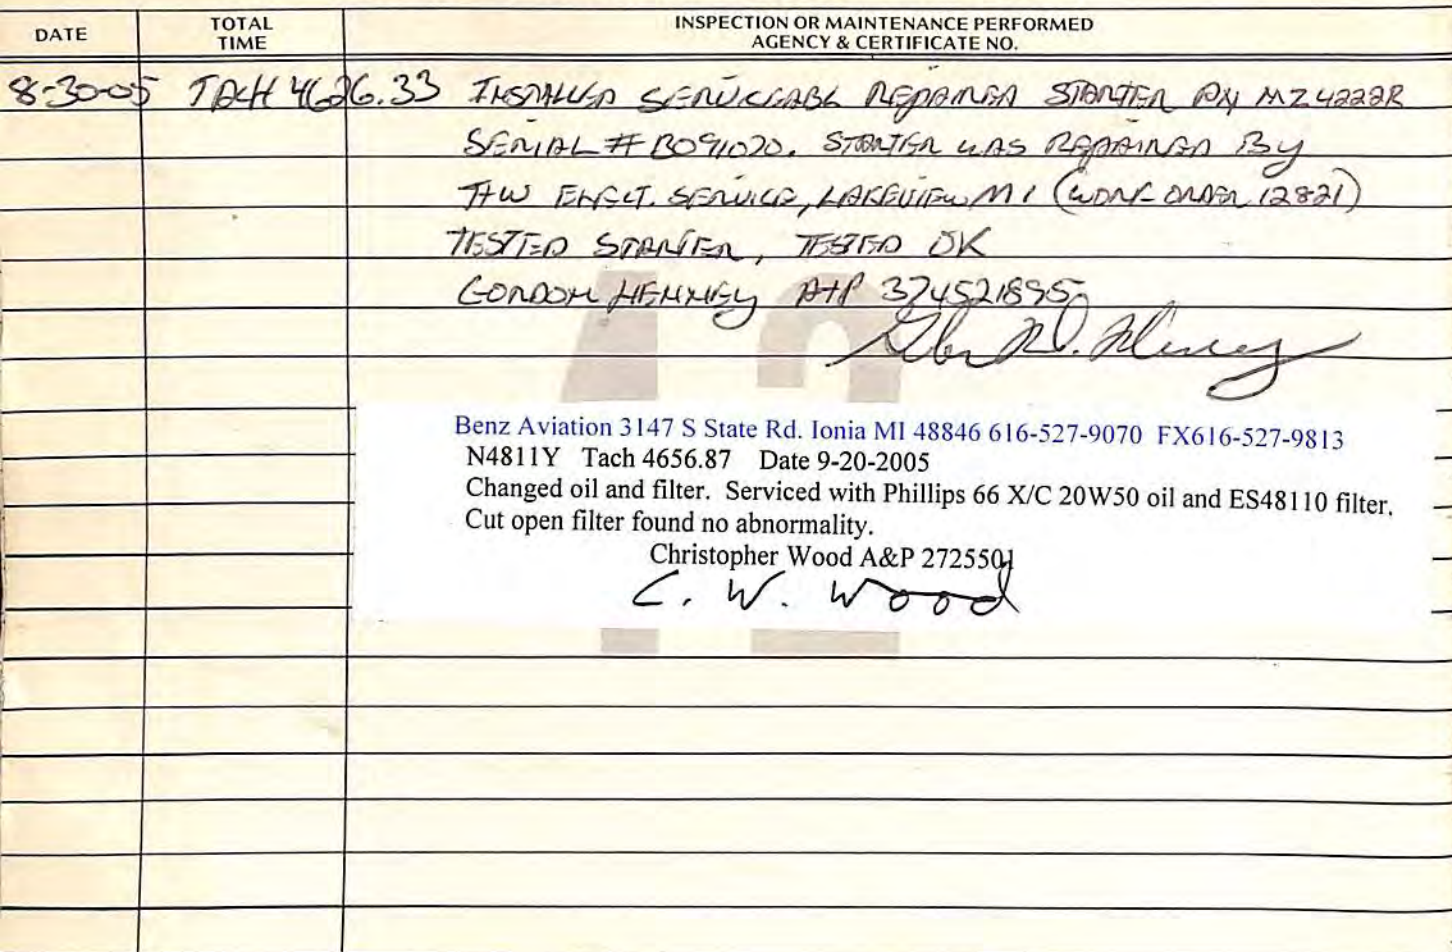 DATE TOTAL TIME INSPECTION OR MAINTENANCE PERFORMED
AGENCY & CERTIFICATE NO.
8-30-05 TACH 4626.33 INSTALLED SERVICEABL REPAIRED STARTER PN MZ4222R
SERIAL # BO91020. STARTER WAS REPAIRED By
T+W ELECT. SERVICE, LAKEVIEW MI (WORK ORDER 12821)
TESTED STARTER, TESTED OK
GORDON HENNEY A+P 374521895
Benz Aviation 3147 S State Rd. Ionia MI 48846 616-527-9070 FX616-527-9813
N4811Y Tach 4656.87 Date 9-20-2005
Changed oil and filter. Serviced with Phillips 66 X/C 20W50 oil and ES48110 filter.
Cut open filter found no abnormality.
Christopher Wood A&P 2725501
C. W. Wood